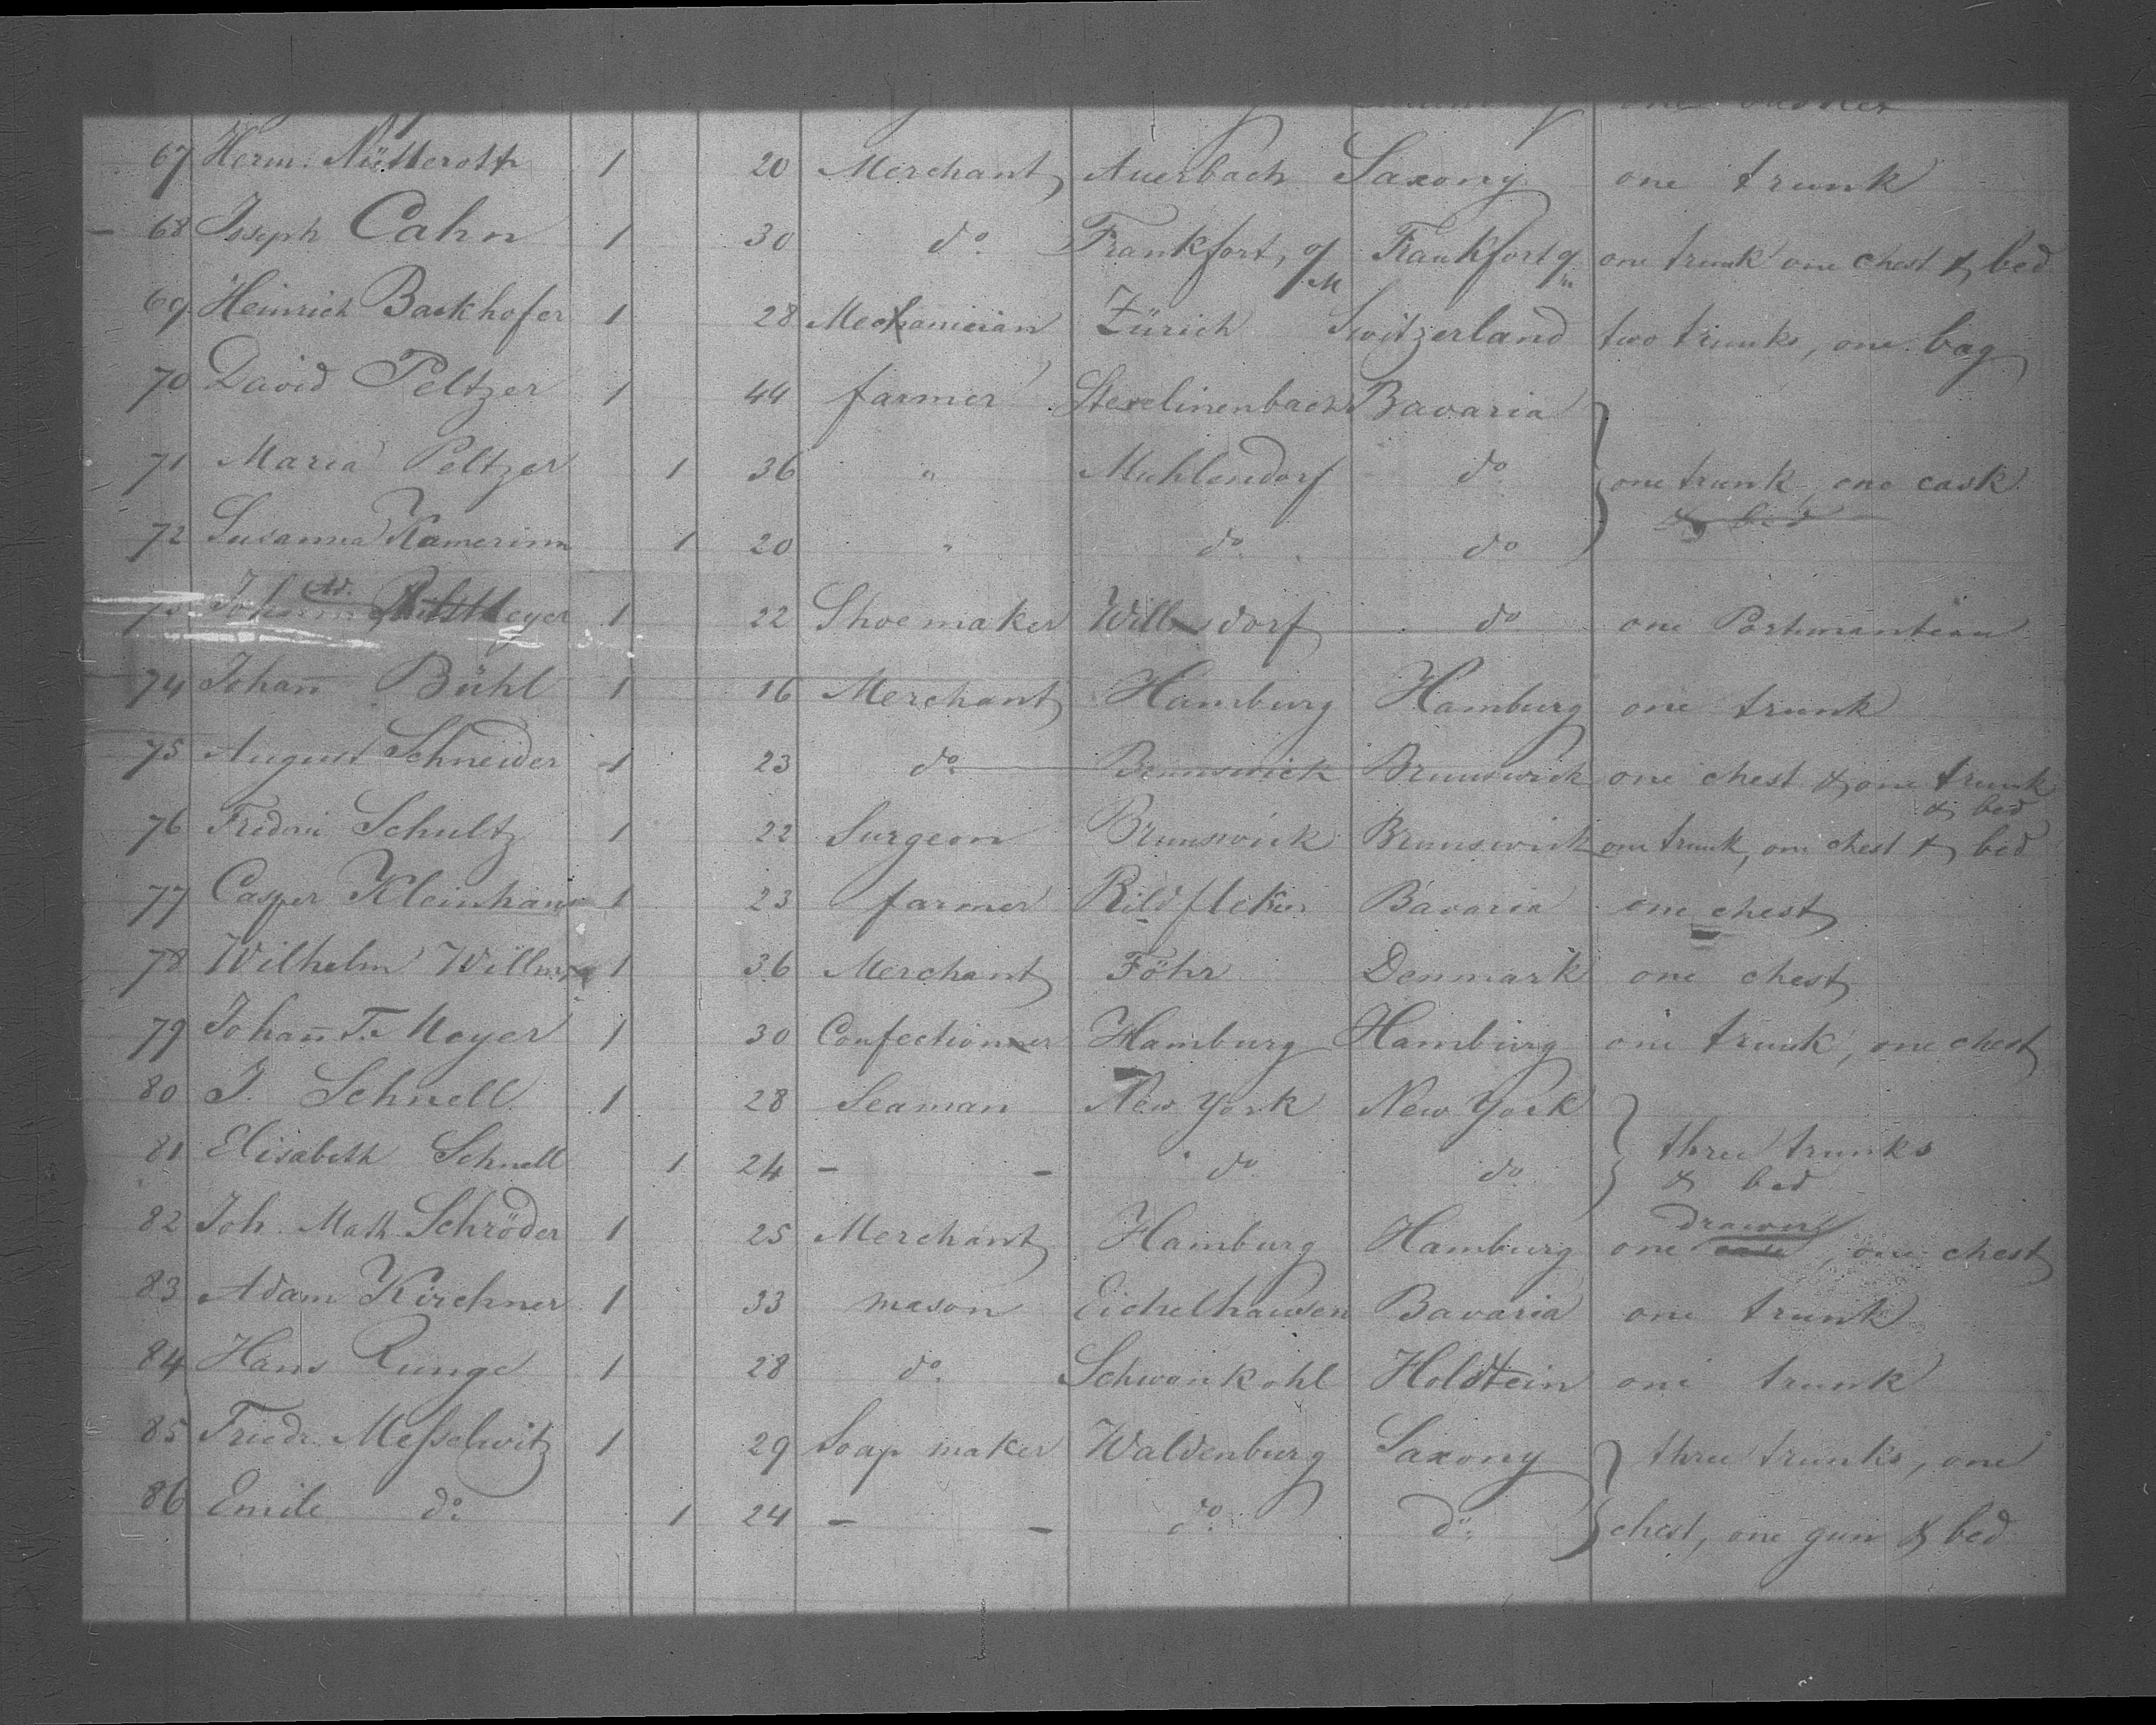 67 Herm. Nütteroth 1 20 Merchant Auerbach Saxony one trunk
68 Joseph Cahn 1 30 do Frankfort, o/M Frankfort o/m one trunk one chest & bed
69 Heinrich Backhofer 1 28 Mechanician Zürich Switzerland two trunks, one bag
70 David Peltzer 1 44 farmer Bavaria
71 Maria Peltzer 1 36 " Muhlendorf do one trunk, one cask
& bed
72 Susanna Kamerinn 1 20 " do do
Ad.
1 22 Shoemaker Willmsdorf do one Portmanteau
74 Johan̄ Bühl 1 16 Merchant Hamburg Hamburg one trunk
75 August Schneider 1 23 do Brunswick Brunswick one chest & one trunk
& bed
76 Schultz 1 22 Surgeon Brunswick Brunswick one trunk, one chest & bed
77 Casper Kleinhans 1 23 farmer Bavaria one chest
78 Wilhelm 1 36 Merchant Föhr Denmark one chest
79 Johan̄ Fr. Meyer 1 30 Confectioner Hamburg Hamburg one trunk, one chest
80 J. Schnell 1 28 Seaman New York New York
81 Elisabeth Schnell 1 24 – – do do three trunks
& bed
drawer
82 Joh. Math. Schröder 1 25 Merchant Hamburg Hamburg one case, one chest
83 Adam Kirchner 1 33 mason Eichelhausen Bavaria one trunk
84 Hans Runge 1 28 do. Schwonkohl Holstein one trunk
85 Friedr. Messelwitz 1 29 Soap maker Waldenburg Saxony three trunks, one
86 Emile do. 1 24 – – do do chest, one gun & bed